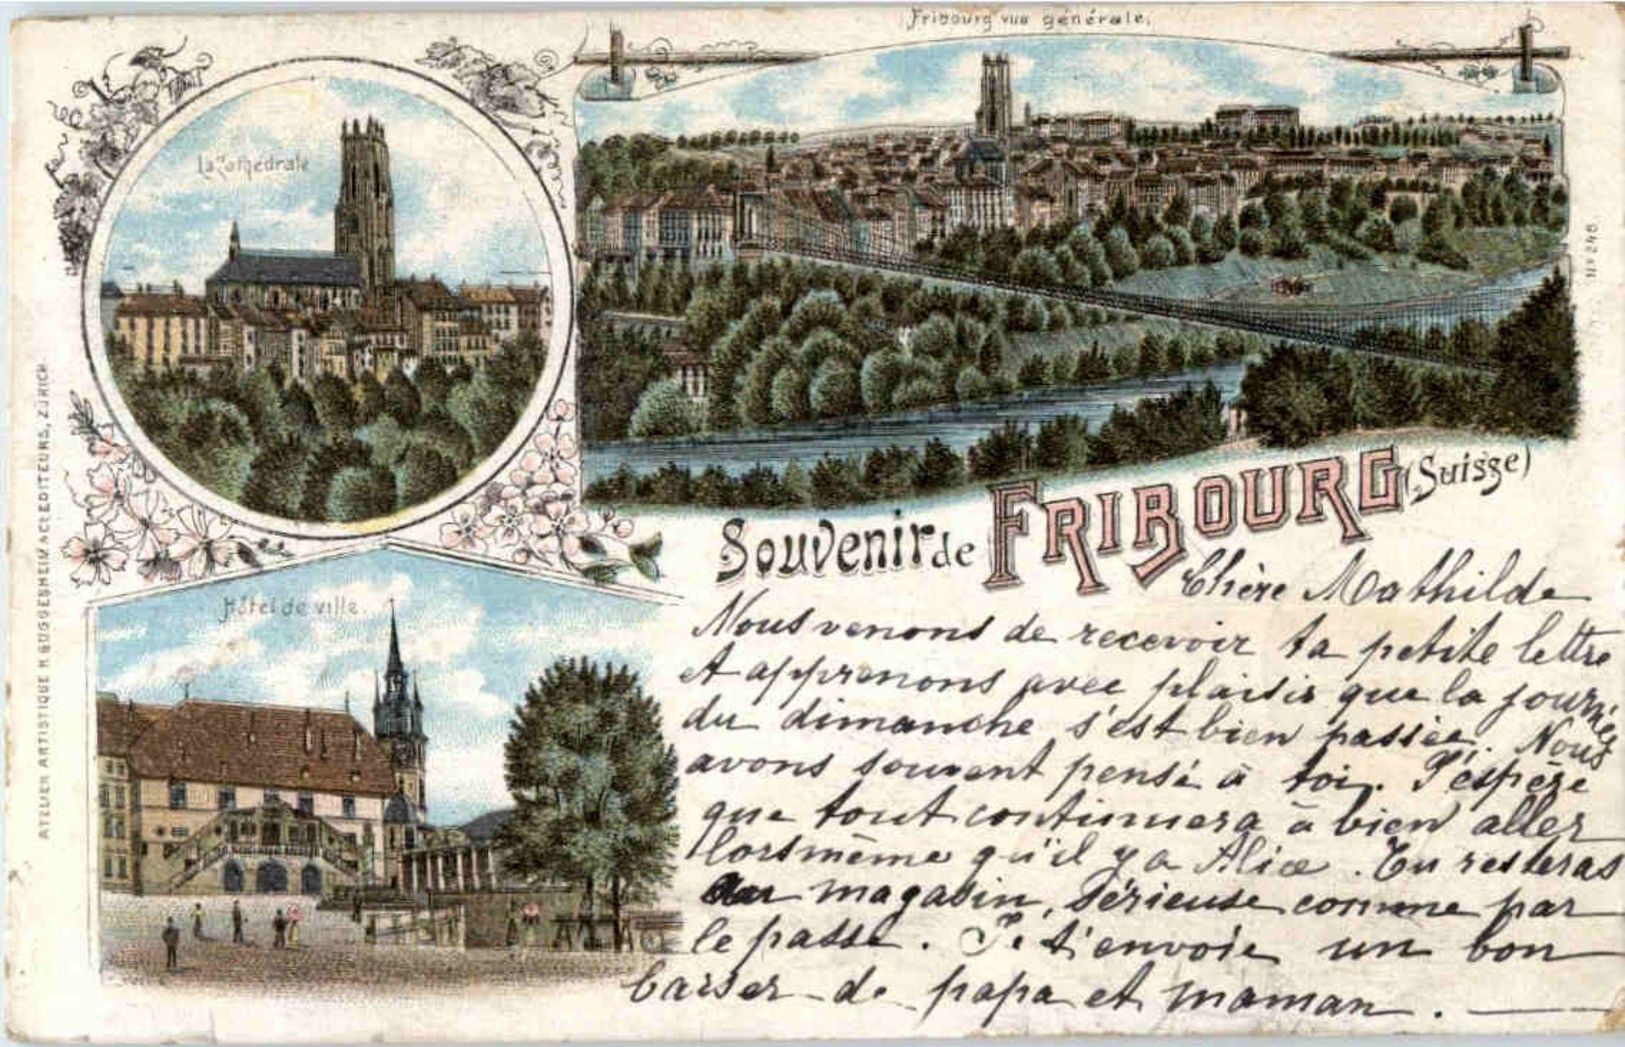 Fribourg vue générale.
La Cathédrale
Nº 246.
ATELIER ARTISTIQUE H. GUGGENHEIM & Cie EDITEURS, ZÜRICH.
Souvenir de FRIBOURG (Suisse)
Hôtel de ville.
Chère Mathilde
Nous venons de recevoir ta petite lettre
et apprenons avec plaisir que la journée
du dimanche s'est bien passée. Nous
avons souvent pensé à toi. J'espère
que tout continuera à bien aller
lorsmème qu'il y a Alice. Tu resteras
au magasin, sérieuse comme par
le passé. Je t'envoie un bon
baiser de papa et maman.